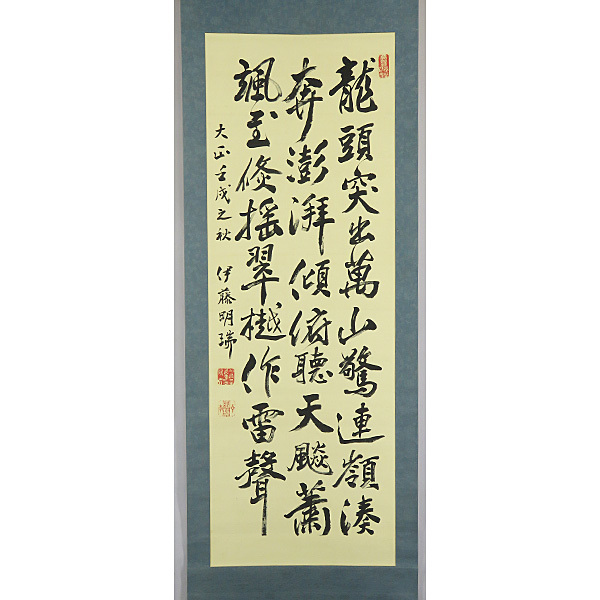 龍頭突出萬山驚連嶺湊
奔澎湃傾俯聽天飇蕭
颯至倐搖翠樾作雷聲
大正壬戌之秋 伊藤明瑞